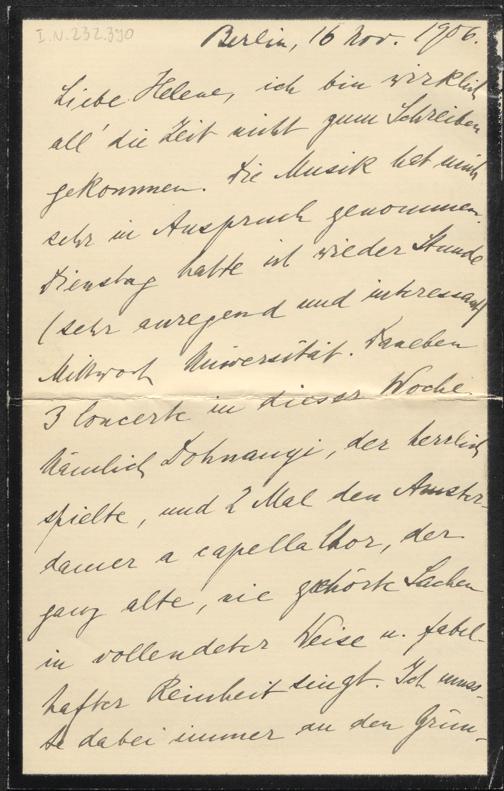 I.N. 232.390
Berlin, 16 Nov. 1906.
Liebe Helene, ich bin wirklich
all' die Zeit nicht zum Schreiben
gekommen. Die Musik hat mich
sehr in Anspruch genommen.
Dienstag hatte ich wieder Stunde
(sehr anregend und interessant)
Mittwoch Universität. Daneben
3 Concerte in dieser Woche
Nämlich Dohnanyi, der herrlich
spielte, und 2 Mal den Amster-
damer a capella Chor, der
ganz alte, nie gehörte Sachen
in vollendeter Weise u. fabel-
hafter Reinheit singt. Ich muss-
te dabei immer an den Grün-